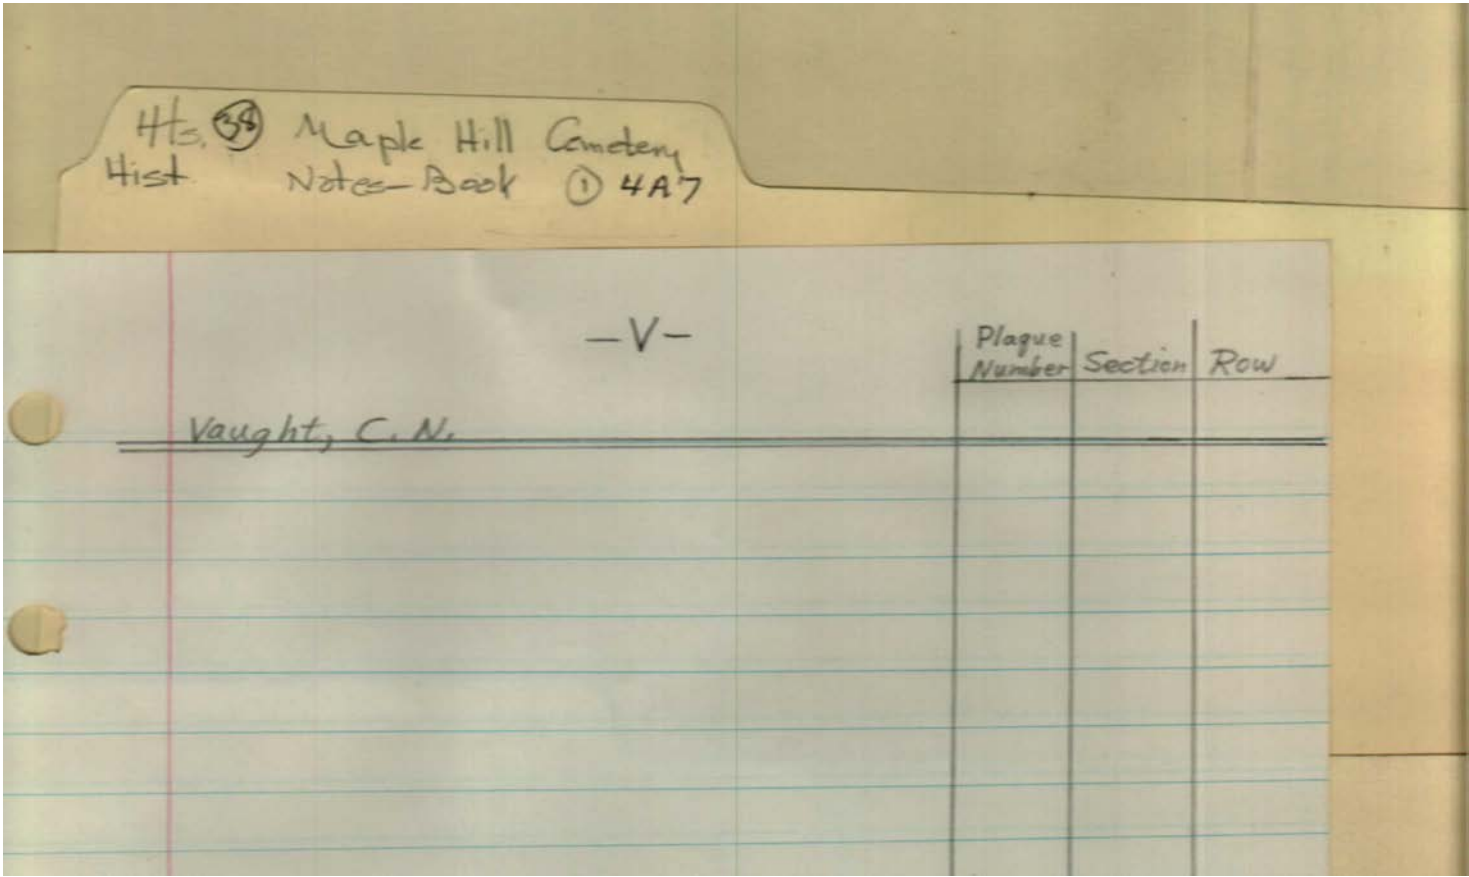 Hts. 38 Maple Hill Cemetery
Hist Notes-Book 1 4A7
-V-
Plaque
Number Section Row
Vaught, C. N.